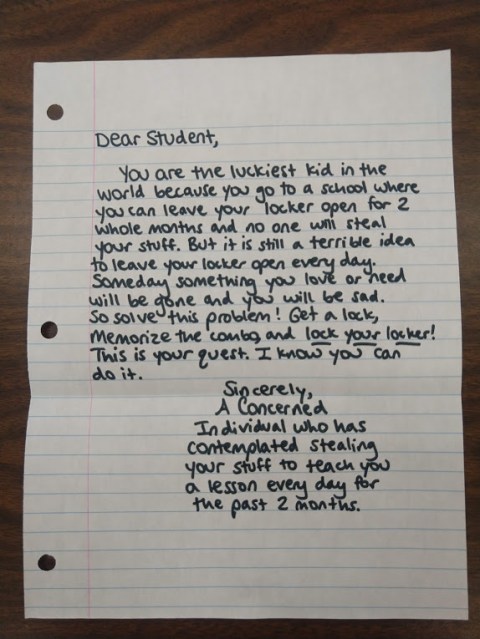 Dear Student,
You are the luckiest kid in the
world because you go to a school where
you can leave your locker open for 2
whole months and no one will steal
your stuff. But it is still a terrible idea
to leave your locker open every day.
Someday something you love or need
will be gone and you will be sad.
So solve this problem! Get a lock,
Memorize the combo, and lock your locker!
This is your quest. I know you can
do it.
Sincerely,
A Concerned
Individual who has
contemplated stealing
your stuff to teach you
a lesson every day for
the past 2 months.